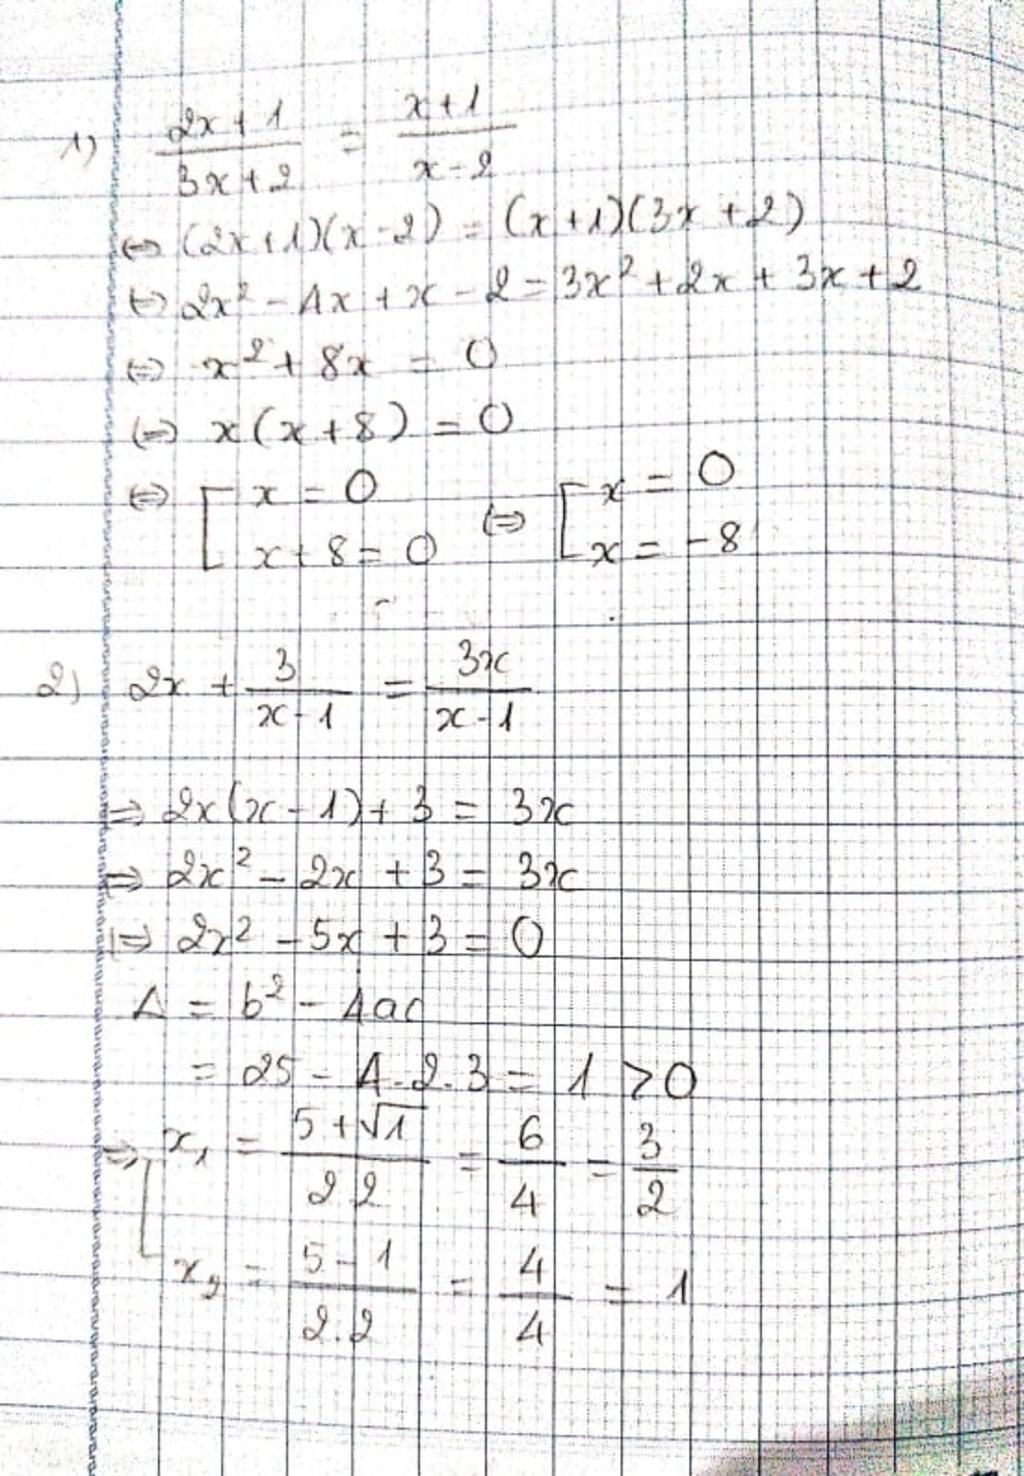 1) (2x+1)/(3x+2) = (x+1)/(x-2)
⇔ (2x+1)(x-2) = (x+1)(3x+2)
⇔ 2x² - 4x + x - 2 = 3x² + 2x + 3x + 2
⇔ x² + 8x = 0
⇔ x(x+8) = 0
⇔ [ x = 0 ; x + 8 = 0 ⇔ [ x = 0 ; x = -8
2) 2x + 3/(x-1) = 3x/(x-1)
⇒ 2x(x-1) + 3 = 3x
⇔ 2x² - 2x + 3 = 3x
⇔ 2x² - 5x + 3 = 0
Δ = b² - 4ac
= 25 - 4.2.3 = 1 > 0
⇒ [ x₁ = (5+√1)/(2.2) = 6/4 = 3/2
x₂ = (5-1)/(2.2) = 4/4 = 1